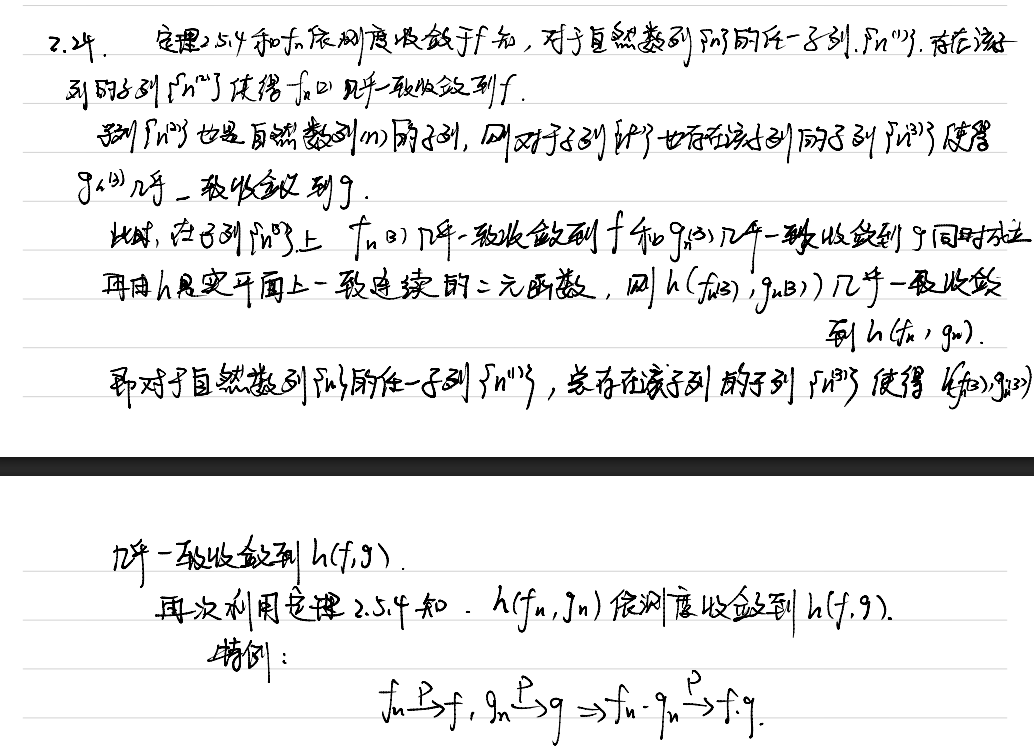 2.24. 定理2.5.4和fn依测度收敛于f知，对于自然数列{n}的任一子列{n⁽¹⁾}，存在该子
列的子列{n⁽²⁾}使得fn⁽²⁾几乎一致收敛到f.
子列{n⁽²⁾}也是自然数列(n)的子列，则对于子列{n⁽²⁾}也存在该子列的子列{n⁽³⁾}使得
gn⁽³⁾几乎一致收敛到g.
此时，在子列{n⁽³⁾}上 fn⁽³⁾几乎一致收敛到f和gn⁽³⁾几乎一致收敛到g同时成立
再由h是实平面上一致连续的二元函数，则h(fn⁽³⁾, gn⁽³⁾)几乎一致收敛
到h(fn, gn).
即对于自然数列{n}的任一子列{n⁽¹⁾}，总存在该子列的子列{n⁽³⁾}使得h(fn⁽³⁾, gn⁽³⁾)
几乎一致收敛到h(f,g).
再次利用定理2.5.4知. h(fn, gn)依测度收敛到h(f,g).
特例：
fn →ᴾ f, gn →ᴾ g ⇒ fn·gn →ᴾ f·g.